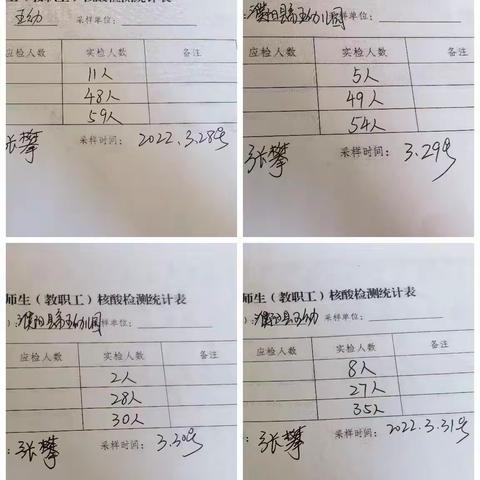 王幼 采样单位:
应检人数 实检人数 备注
11人
48人
59人
张攀 采样时间: 2022.3.28号
采样单位:
应检人数 实检人数 备注
5人
49人
54人
张攀 采样时间: 3.29号
师生(教职工)核酸检测统计表
采样单位:
应检人数 实检人数 备注
2人
28人
30人
张攀 采样时间: 3.30号
师生(教职工)核酸检测统计表
采样单位:
应检人数 实检人数 备注
8人
27人
35人
张攀 采样时间: 2022.3.31号